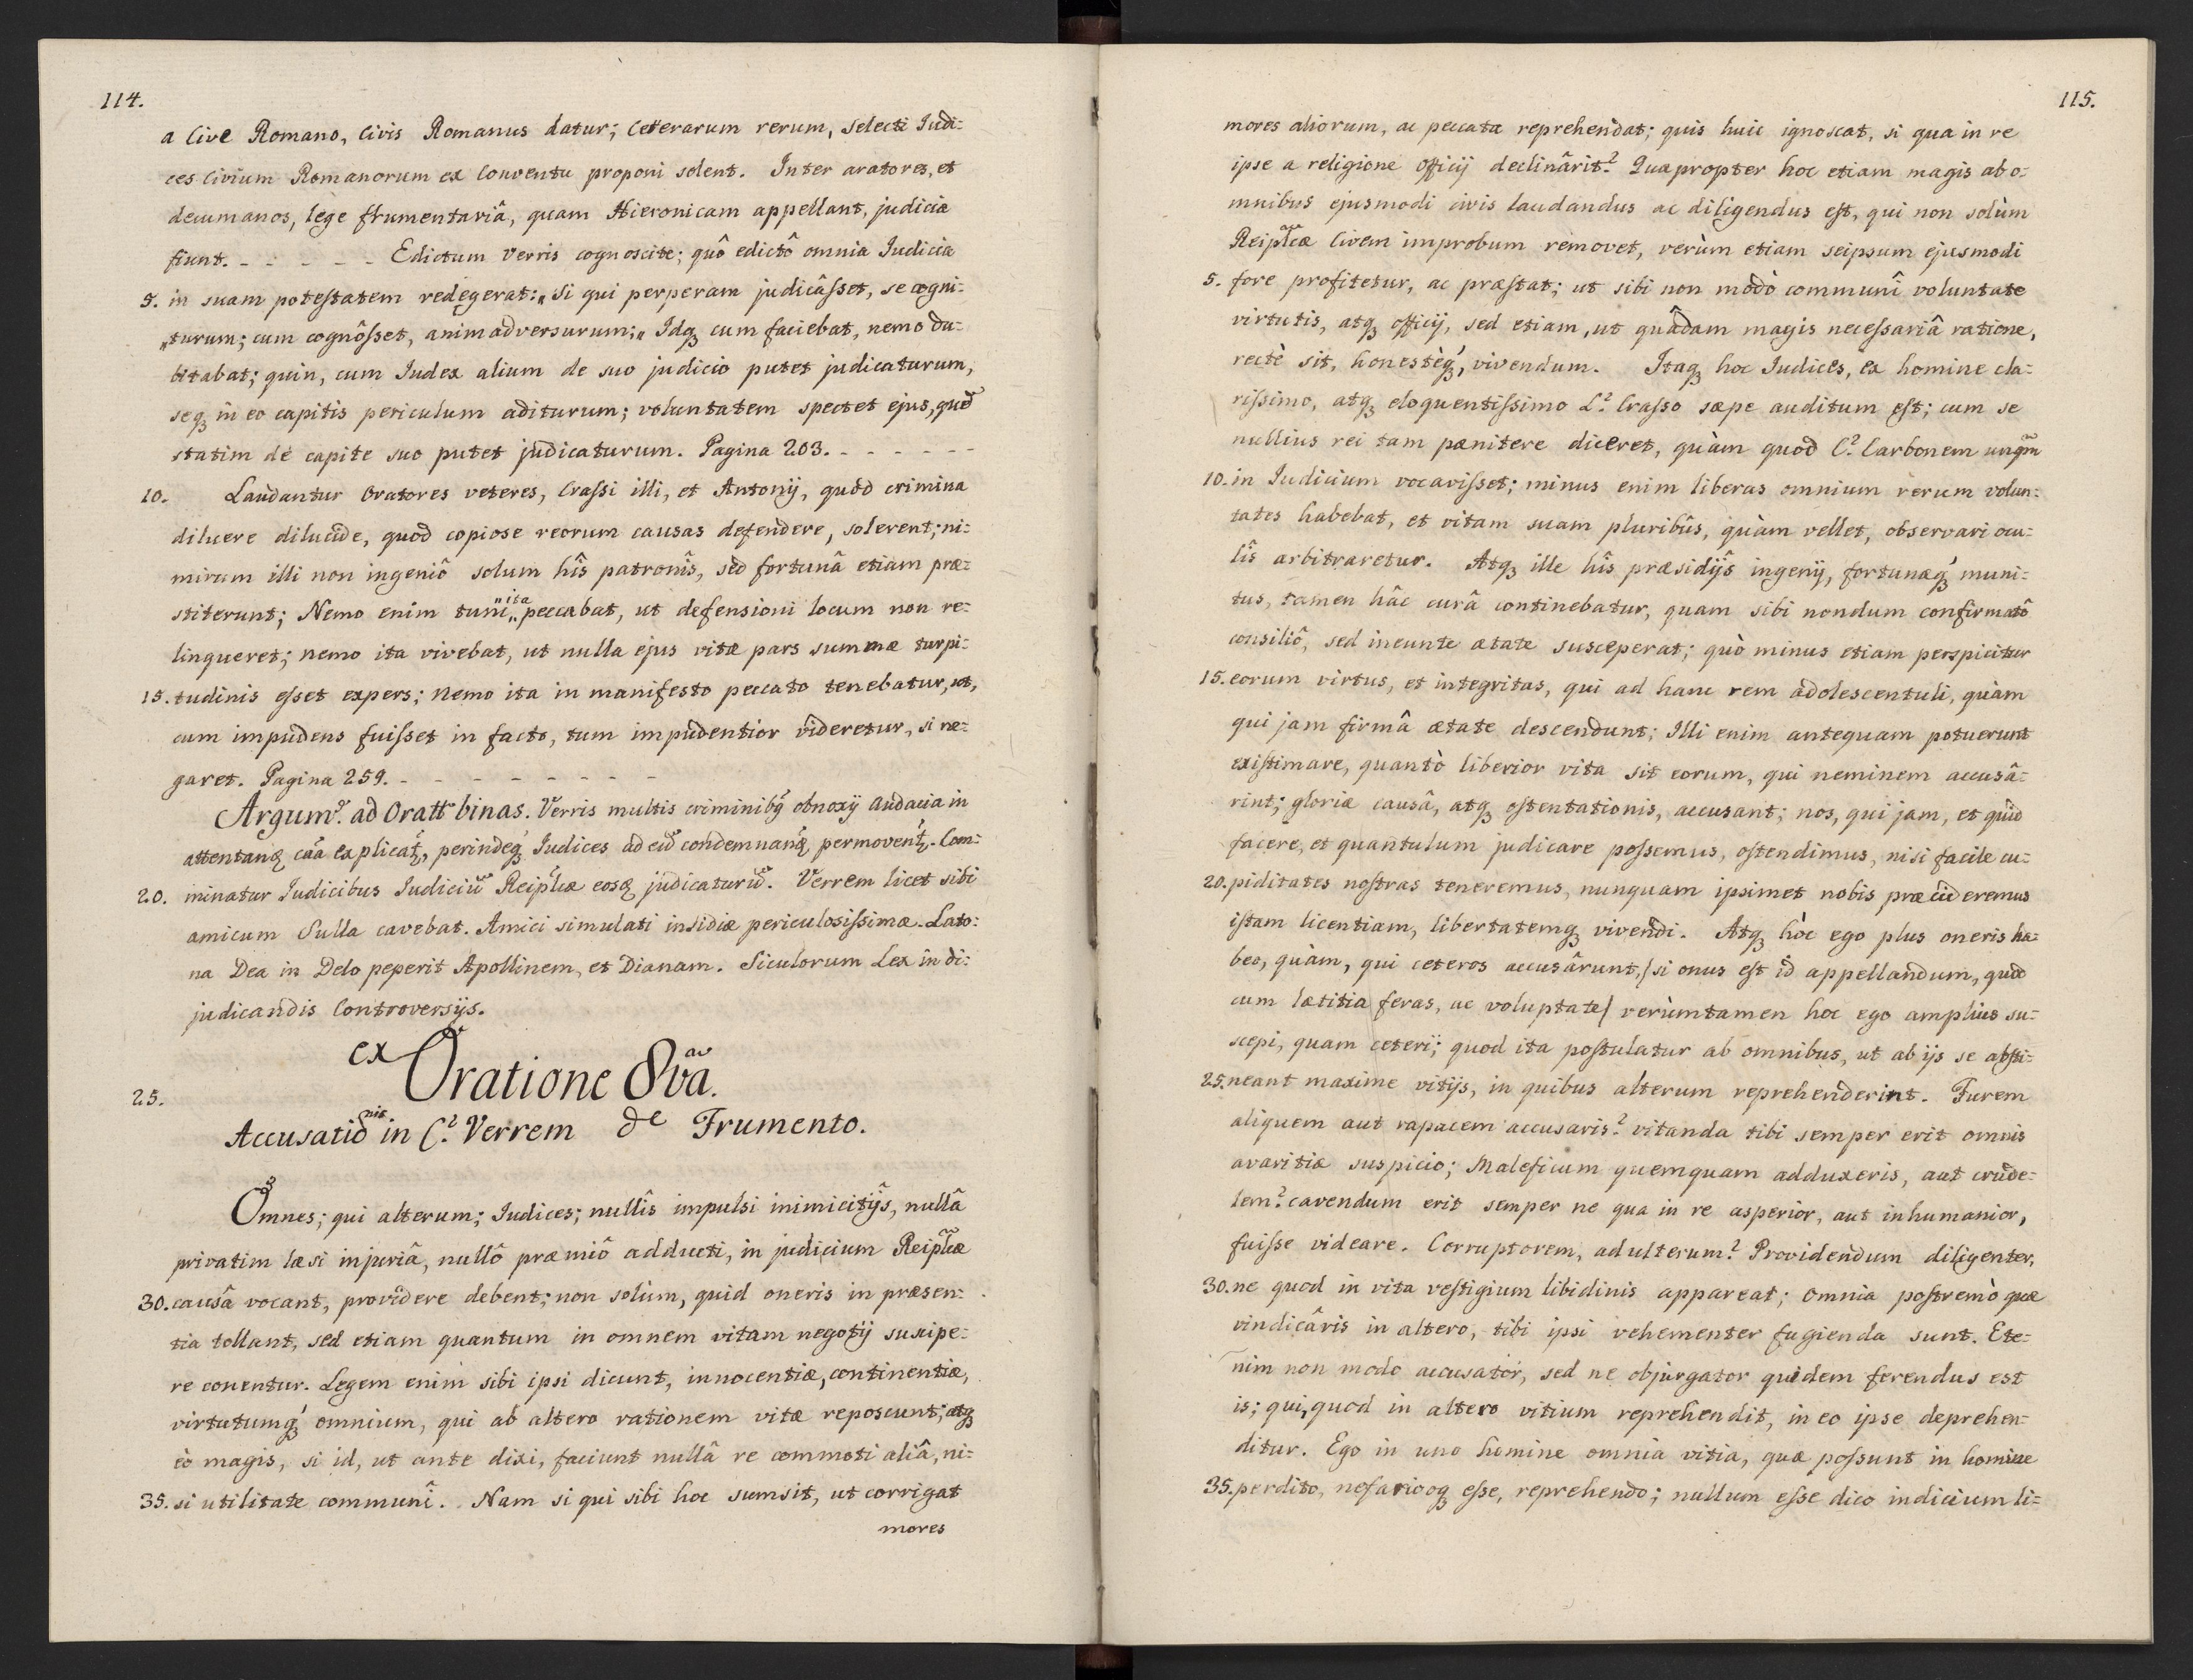 114.
a Cive Romano, Civis Romanus datur; Ceterarum rerum, selecti Judi:
ces Civium Romanorum ex Conventu proponi solent. Inter aratores, et
decumanos, lege frumentariâ, quam Hieronicam appellant, judicia
fiunt. - - - - - Edictum Verris cognoscite; quô edictô omnia Judicia
5. in suam potestatem redegerat: „Si qui perperam judicâsset, se cogni:
„turum; cum cognôsset, animadversurum;„ Idq₃ cum faciebat, nemo du:
bitabat; quin, cum Judex alium de suo judicio putet judicaturum,
seq₃ in eo capitis periculum aditurum; voluntatem spectet ejus, quẽ
statim de capite suo putet judicaturum. Pagina 203. - - - - - -
10. Laudantur Oratores veteres, Crassi illi, et Antonij, quòd crimina
diluere dilucide, quod copiose reorum causas defendere, solerent; ni:
mirum illi non ingeniô solum hîs patronîs, sed fortunâ etiam præ:
stiterunt; Nemo enim tum „ita„ peccabat, ut defensioni locum non re:
linqueret; nemo ita vivebat, ut nulla ejus vitæ pars summæ turpi:
15. tudinis esset expers; nemo ita in manifesto peccato tenebatur, ut,
cum impudens fuisset in facto, tum impudentior videretur, si ne:
garet. Pagina 259. - - - - - - -
Argumᵗ. ad Oratt binas. Verris multis criminibq́ obnoxij audacia in
attentanq caã explicat̃, perindeq́ Judices ad eũ condemnanq̃ permovent̃. Com:
20. minatur Judicibus Judiciũ Reiplcæ eosq judicaturũ. Verrem licet sibi
amicum Sulla cavebat. Amici simulati insidiæ periculosissimæ. Lato:
na Dea in Delo peperit Apollinem, et Dianam. Siculorum Lex in di:
judicandis Controversijs.
ex Oratione 8vâ.
25.
Accusatioᵑⁱˢ in C? Verrem de Frumento.
Omnes; qui alterum; Judices; nullîs impulsi inimicitijs, nullâ
privatim læsi injuriâ, nullô præmiô adducti, in judicium Reiplcæ
30. causâ vocant, providere debent; non solùm, quid oneris in præsen:
tia tollant, sed etiam quantum in omnem vitam negotij suscipe:
re conentur. Legem enim sibi ipsi dicunt, innocentiæ, continentiæ,
virtutumq₃́ omnium, qui ab altero rationem vitæ reposcunt; atq₃
eò magis, si id, ut ante dixi, faciunt nullâ re commoti aliâ, ni:
35. si utilitate communî. Nam si qui sibi hoc sumsit, ut corrigat
mores
115.
mores aliorum, ac peccata reprehendat; quis huic ignoscat, si qua in re
ipse a religione officij declinârit? Quapropter hoc etiam magis ab o:
mnibus ejusmodi civis laudandus ac diligendus est, qui non solùm
Reiplcæ Civem improbum removet, verùm etiam seipsum ejusmodi
5. fore profitetur, ac præstat; ut sibi non modò communî voluntate
virtutis, atq₃ officij, sed etiam, ut quâdam magis necessariâ ratione,
rectè sit, honestèq₃́, vivendum. Itaq₃ hoc Judices, ex homine cla:
rissimo, atq₃ eloquentissimo L? Crasso sæpe auditum est; cum se
nullius rei tam pænitere diceret, quàm quod C? Carbonem unqm̃
10. in Judicium vocavisset; minus enim liberas omnium rerum volun:
tates habebat, et vitam suam pluribûs, quàm vellet, observari ocu:
lîs arbitraretur. Atq₃ ille hîs præsidijs ingenij, fortunæq₃́ muni:
tus, tamen hâc curâ continebatur, quam sibi nondum confirmatô
consiliô, sed ineunte ætate susceperat; quò minus etiam perspicitur
15. eorum virtus, et integritas, qui ad hanc rem adolescentuli, quàm
qui jam firmâ ætate descendunt; Illi enim antequam potuerunt
existimare, quantò liberior vita sit eorum, qui neminem accusâ:
rint; gloriæ causâ, atq₃ ostentationis, accusant; nos, qui jam, et quid
facere, et quantulum judicare possemus, ostendimus, nisi facile cu:
20. piditates nostras teneremus, nunquam ipsimet nobis præcideremus
istam licentiam, libertatemq₃ vivendi. Atq₃ hòc ego plus oneris ha:
beo, quàm, qui ceteros accusârunt, / si onus est id appellandum, quod
cum lætitia feras, ac voluptate / verùmtamen hoc ego amplius su:
scepi, quam ceteri; quod ita postulatur ab omnibus, ut ab ijs se absti:
25. neant maxime vitijs, in quibus alterum reprehenderint. Furem
aliquem aut rapacem accusaris? vitanda tibi semper erit omnis
avaritiæ suspicio; Maleficum quemquam adduxeris, aut crude:
lem? cavendum erit semper ne qua in re asperior, aut inhumanior,
fuisse videare. Corruptorem, adulterum? Providendum diligenter,
30. ne quod in vita vestigium libidinis appareat; Omnia postremò quæ
vindicâris in altero, tibi ipsi vehementer fugienda sunt. Ete:
nim non modo accusator, sed ne objurgator quidem ferendus est
is; qui, quod in altero vitium reprehendit, in eo ipse deprehen:
ditur. Ego in uno homine omnia vitia, quæ possunt in homine
35. perdito, nefarioq₃ esse, reprehendo; nullum esse dico indicium li: